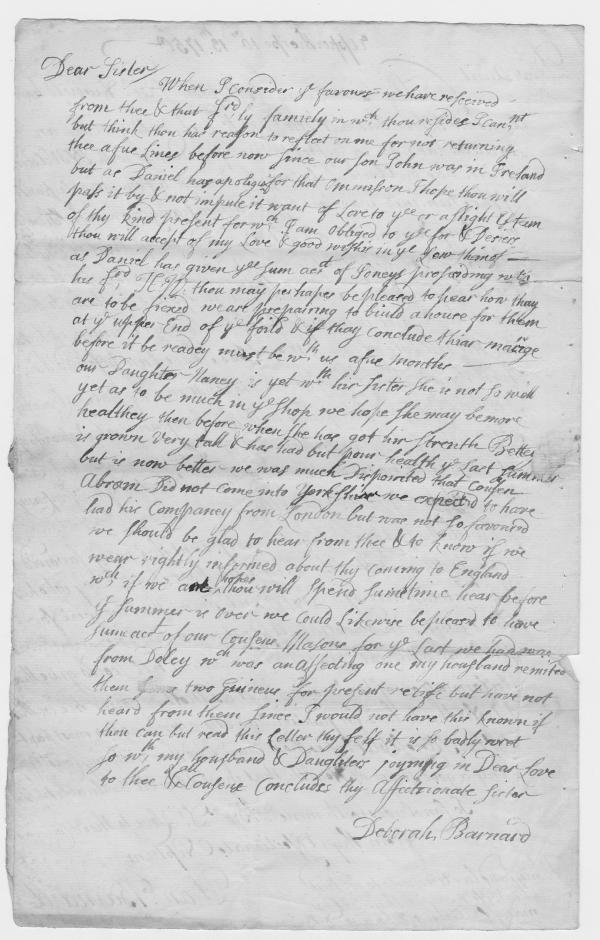 Dear Sister
When I consider ye favours we have received
from thee & that frdly family in wch thou resides I cannt
but think thou has reason to reflect on me for not returning
thee a fue Lines before now since our son John was in Ireland
but as Daniel has apologis for that ommision I hope thou will
pass it by & not impute it want of Love to yee or a slight Esteem
of thy kind present for wch I am obliged to yee for & Desiers
thou will accept of my Love & good wishes in ye few thines
as Daniel has given yee sum acct of Toneys proseeding wth
his frd thou may perhaps be pleased to hear how thay
are to be fixed we are prepairing to build a house for them
at ye upper End of ye foild & if thay conclude thiar mairige
before it be readey must be wth us a fue months
our Daughter Naney is yet wth his sister she is not so well
yet as to be much in ye shop we hope she may be more
healthey then before when she has got hir strenth Better
is grown very tall & has had but pour health ye Last summer
but is now better we was much Disporated that Cousen
Abram Did not come into York Shier we expectd to have
had his Companey from London but was not so favoured
we should be glad to hear from thee & to know if we
wear rightly informed about thy coming to England
wch if we are hopes thou will spend sumetime hear before
ye summer is over we could Likewise be pleased to have
sum acct of our Cousens Masons for ye Last we had was
from Doley wch was an affecting one my housband remited
them two Guineus for present relife but have not
heard from them since I would not have this known if
thou can but read this Letter thy self it is so badly wret
so wth my housband & Daughters joyning in Dear Love
to thee & all Cousens Concludes thy Affectionate Sister
Deborah Barnard